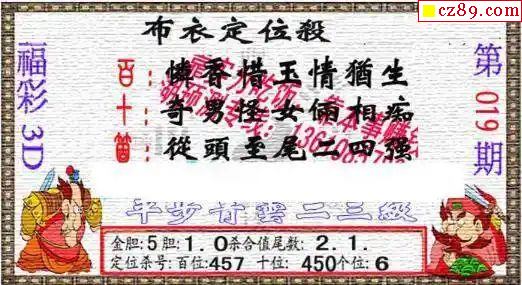 cz89.com
布衣定位殺
福彩3D
第019期
百：憐香惜玉情猶生
十：奇男怪女倆相痴
箇：從頭至尾二四强
平步青雲二三級
金胆:5胆:1.0杀合值尾数:2.1.
定位杀号:百位:457 十位:450个位:6